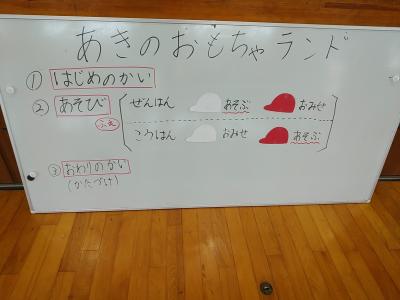 あきのおもちゃランド
① はじめのかい
② あそび ぜんはん あそぶ おみせ
ふえ
こうはん おみせ あそぶ
③ おわりのかい
(かたづけ)